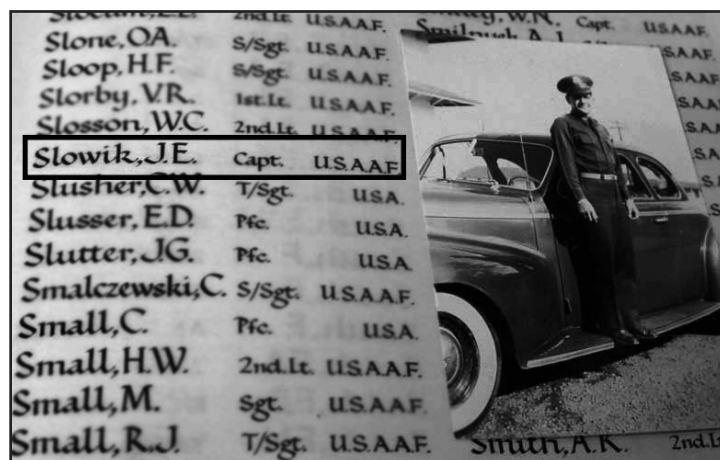 2nd.Lt. U.S.A.A.F.
Slone, O.A. S/Sgt. U.S.A.A.F.
Sloop, H.F. S/Sgt. U.S.A.A.F.
Slorby, V.R. 1st.Lt. U.S.A.A.F.
Slosson, W.C. 2nd.Lt. U.S.A.A.F.
Slowik, J.E. Capt. U.S.A.A.F.
Slusher, C.W. T/Sgt. U.S.A.
Slusser, E.D. Pfc. U.S.A.
Slutter, J.G. Pfc. U.S.A.
Smalczewski, C. S/Sgt. U.S.A.A.F.
Small, C. Pfc. U.S.A.
Small, H.W. 2nd.Lt. U.S.A.A.F.
Small, M. Sgt. U.S.A.A.F.
Small, R.J. T/Sgt. U.S.A.A.F.
W.N. Capt. U.S.A.A.F.
Smith, A.K. 2nd.Lt